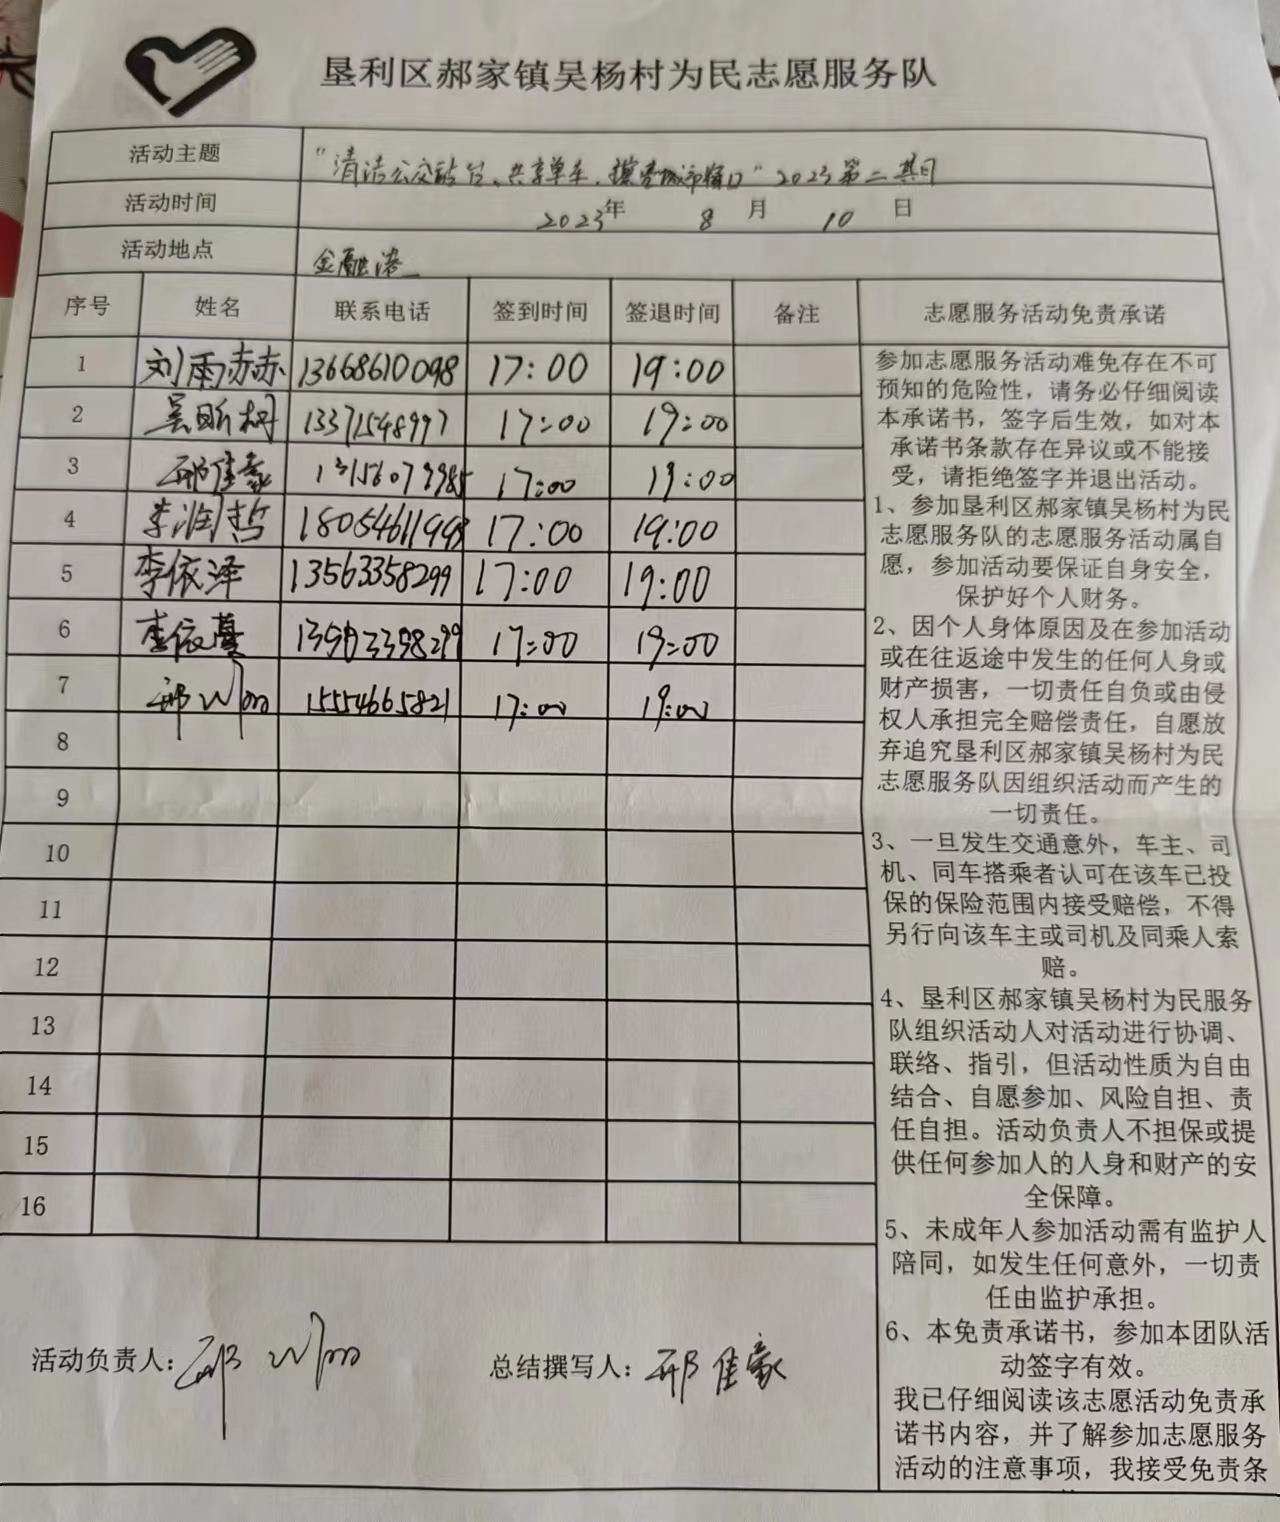 垦利区郝家镇吴杨村为民志愿服务队
活动主题 "清洁公交站台、共享单车、擦亮城市窗口" 2023第二期
活动时间 2023年 8 月 10 日
活动地点 金融港
序号 姓名 联系电话 签到时间 签退时间 备注 志愿服务活动免责承诺
1 刘雨赤赤 13668610098 17:00 19:00
2 吴昕柯 13371548997 17:00 19:00
3 邢佳豪 17:00 19:00
4 李润哲 18054611998 17:00 19:00
5 李依泽 13563358299 17:00 19:00
6 李依蔓 17:00 19:00
7 邢 15554665821 17:00 19:00
8
9
10
11
12
13
14
15
16
参加志愿服务活动难免存在不可
预知的危险性，请务必仔细阅读
本承诺书，签字后生效，如对本
承诺书条款存在异议或不能接
受，请拒绝签字并退出活动。
1、参加垦利区郝家镇吴杨村为民
志愿服务队的志愿服务活动属自
愿，参加活动要保证自身安全，
保护好个人财务。
2、因个人身体原因及在参加活动
或在往返途中发生的任何人身或
财产损害，一切责任自负或由侵
权人承担完全赔偿责任，自愿放
弃追究垦利区郝家镇吴杨村为民
志愿服务队因组织活动而产生的
一切责任。
3、一旦发生交通意外，车主、司
机、同车搭乘者认可在该车已投
保的保险范围内接受赔偿，不得
另行向该车主或司机及同乘人索
赔。
4、垦利区郝家镇吴杨村为民服务
队组织活动人对活动进行协调、
联络、指引，但活动性质为自由
结合、自愿参加、风险自担、责
任自担。活动负责人不担保或提
供任何参加人的人身和财产的安
全保障。
5、未成年人参加活动需有监护人
陪同，如发生任何意外，一切责
任由监护承担。
6、本免责承诺书，参加本团队活
动签字有效。
我已仔细阅读该志愿活动免责承
诺书内容，并了解参加志愿服务
活动的注意事项，我接受免责条
活动负责人：邢 总结撰写人：邢佳豪